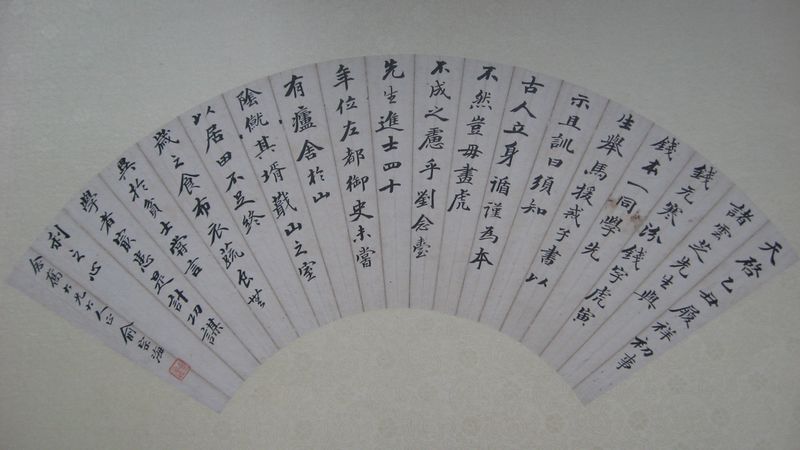 天啓乙丑履祥初事
諸雲芝先生與
錢元寒
錢本一同學錢字虎寅
先生舉馬援戒子書以
示且訓曰須知
古人立身循謹為本
不然豈毋畫虎
不成之慮乎劉念臺
先生進士四十
年位左都御史未嘗
有廬舍於山
陰僦其壻蕺山之室
以居田不足終
歲之食布衣蔬食無
異於貧士嘗言
學者最患是計功謀
利之心
俞宗海